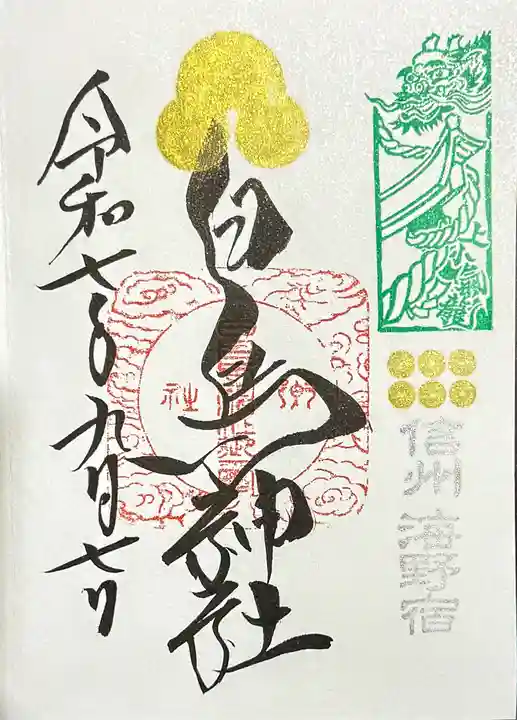 信州 海野宿
白鳥神社
郷社
令和七年九月七日